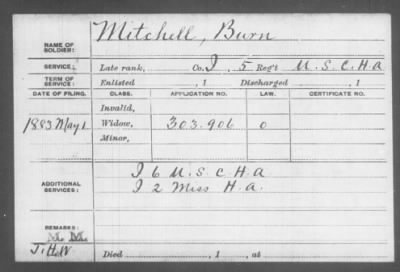 NAME OF SOLDIER: Mitchell, Burn
SERVICE: Late rank, Co. I, 5 Reg't U.S.C.H.A
TERM OF SERVICE: Enlisted , 1 Discharged , 1
DATE OF FILING. CLASS. APPLICATION NO. LAW. CERTIFICATE NO.
Invalid,
1883 May 1 Widow, 303.906 0
Minor,
ADDITIONAL SERVICES: I 6 U.S.C.H.A
I 2 Miss H.A.
REMARKS:
Died , 1 , at